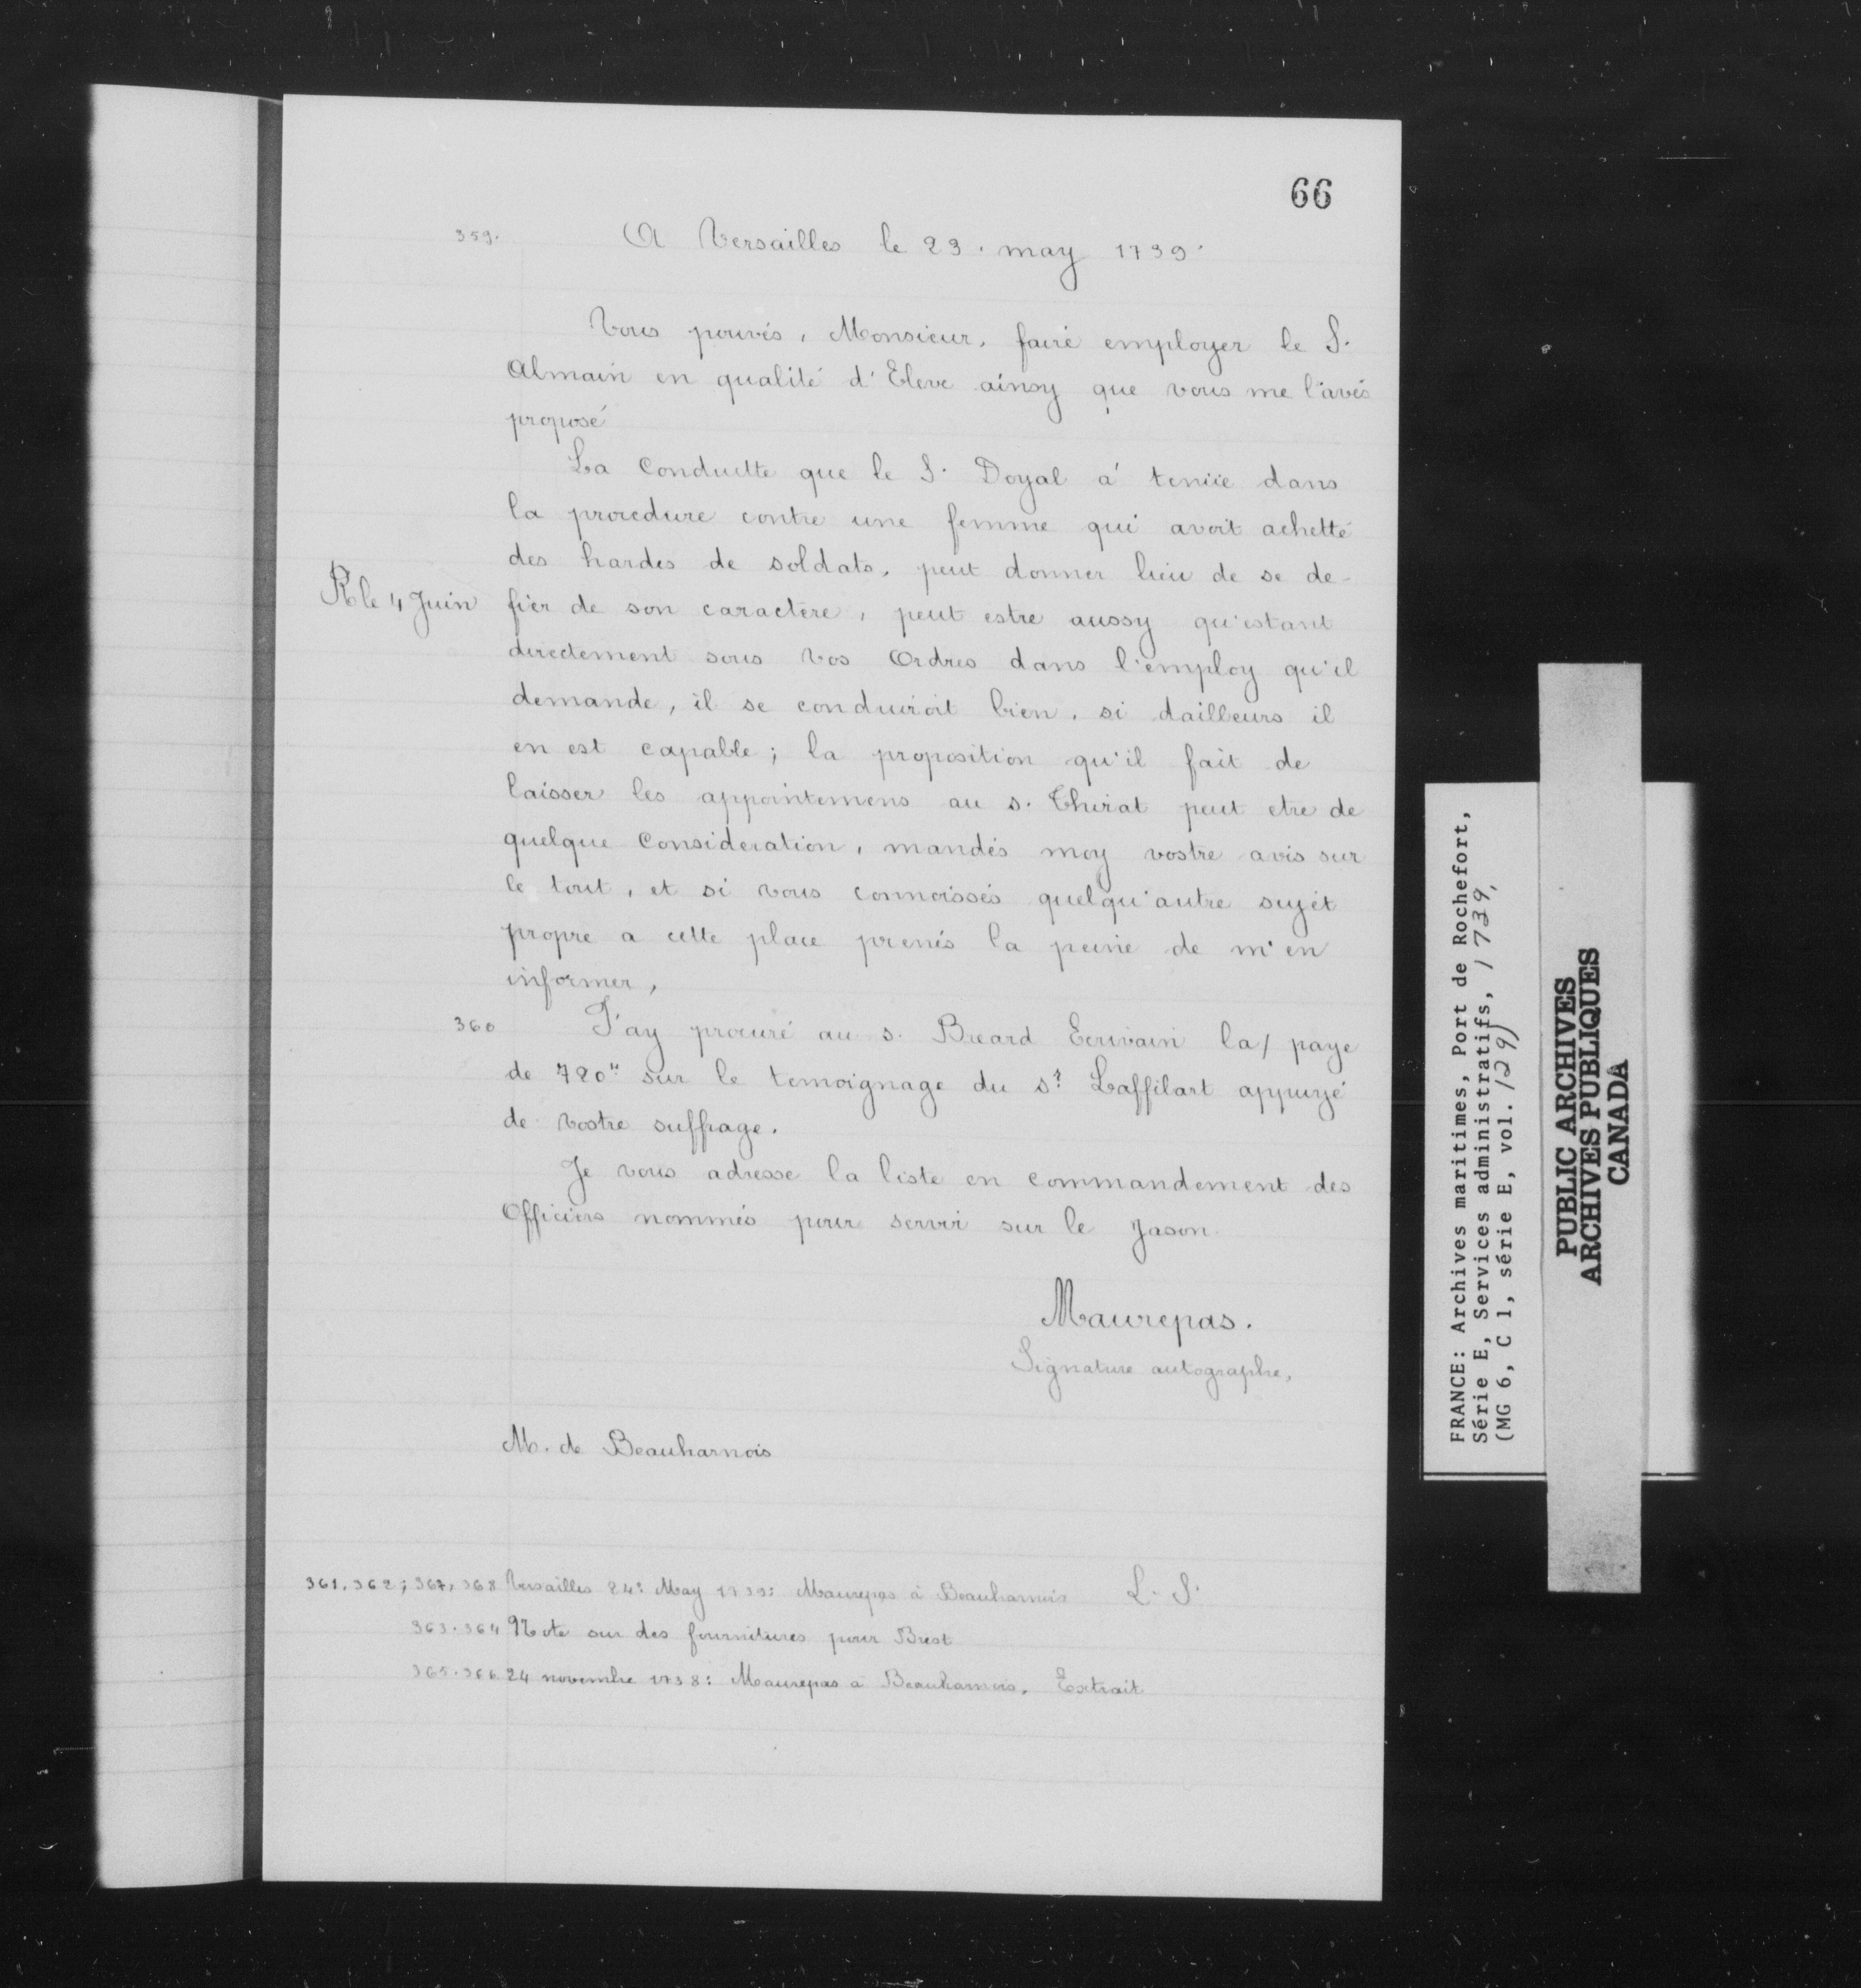 66
359.
A Versailles le 23. may 1739.
Vous pouvés, Monsieur, faire employer le S.
Almain en qualité d'Eleve ainsy que vous me l'avés
proposé
La Conduitte que le S. Doyal a tenüe dans
la procedure contre une femme qui avoit achetté
des hardes de soldats, peut donner lieu de se de-
R le 4 Juin
fier de son caractere, peut estre aussy qu'estant
directement sous vos Ordres dans l'employ qu'il
demande, il se conduiroit bien, si dailleurs il
en est capable; la proposition qu'il fait de
laisser les appointemens au s. Thirat peut etre de
quelque Consideration, mandés moy vostre avis sur
le tout, et si vous connoissés quelqu'autre sujet
propre a cette place prenés la peine de m'en
informer,
360
J'ay procuré au s. Breard Ecrivain la/ paye
de 720# sur le temoignage du sr Laffilart appuyé
de vostre suffrage.
Je vous adresse la liste en commandement des
Officiers nommés pour servir sur le Jason.
Maurepas.
Signature autographe,
M. de Beauharnois
361.362; 367, 368 Versailles 24: May 1739: Maurepas à Beauharnois L. S.
363.364 Note sur des fournitures pour Brest
365.366 24 novembre 1738: Maurepas à Beauharnois. Extrait
FRANCE: Archives maritimes, Port de Rochefort,
Série E, Services administratifs, 1739,
(MG 6, C 1, série E, vol. 129)
PUBLIC ARCHIVES
ARCHIVES PUBLIQUES
CANADA